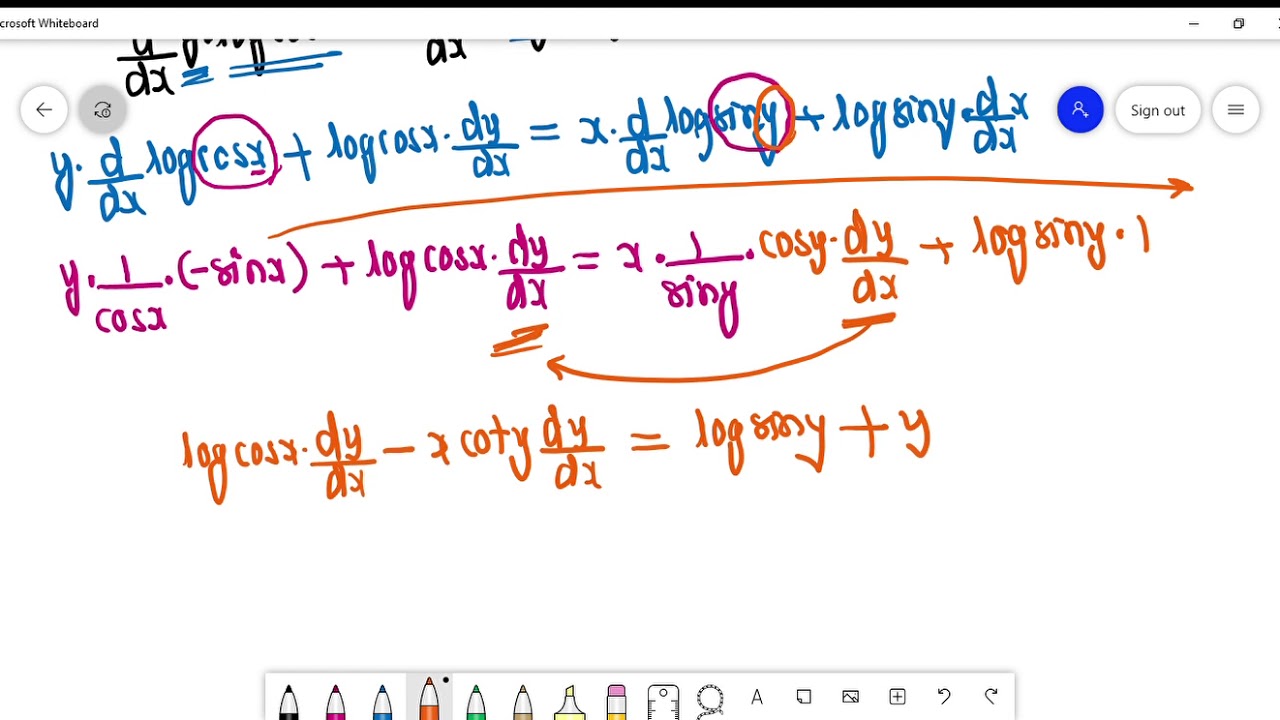 crosoft Whiteboard
dx dx
Sign out
y. d/dx log cosx + log cosx . dy/dx = x. d/dx log siny + log siny . d/dx x
y. 1/cosx . (-sinx) + log cosx . dy/dx = x . 1/siny . cosy . dy/dx + log siny . 1
log cosx . dy/dx - x coty dy/dx = log siny + y
A